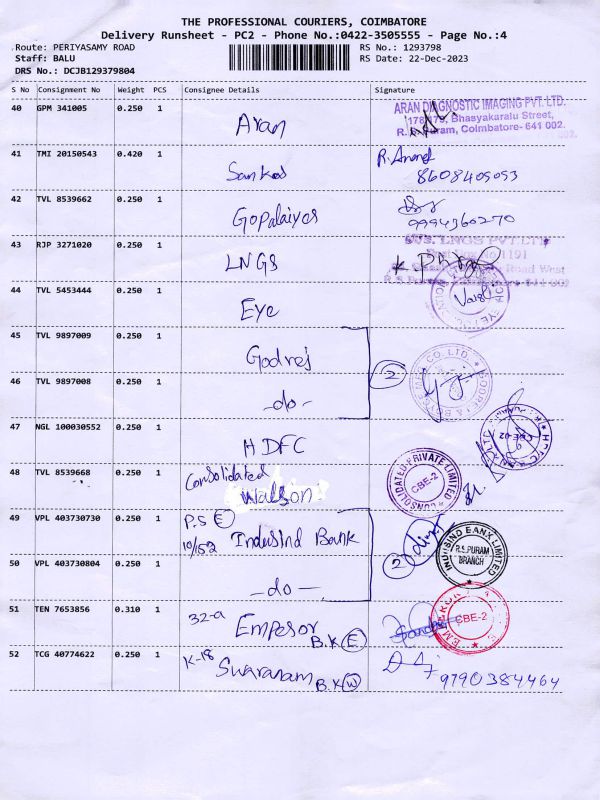 THE PROFESSIONAL COURIERS, COIMBATORE
Delivery Runsheet - PC2 - Phone No.:0422-3505555 - Page No.:4
Route: PERIYASAMY ROAD
RS No.: 1293798
Staff: BALU
RS Date: 22-Dec-2023
DRS No.: DCJB129379804
S No Consignment No Weight PCS Consignee Details Signature
40 GPM 341005 0.250 1 Aran
ARAN DIAGNOSTIC IMAGING PVT. LTD.
178,179, Bhasyakaralu Street,
R.S. Puram, Coimbatore- 641 002.
41 TMI 20150543 0.420 1
R. Anand
8608405053
42 TVL 8539662 0.250 1 Gopalaiyer
9994360270
43 RJP 3271020 0.250 1 LNGS
LNGS PVT.LTD
1191
Road West
44 TVL 5453444 0.250 1 Eye
45 TVL 9897009 0.250 1 Godrej
2
46 TVL 9897008 0.250 1 -do-
47 NGL 100030552 0.250 1 HDFC
CBE-02
48 TVL 8539668 0.250 1 Consolidated
Watson
CONSOLIDATED PRIVATE LIMITED
CBE-2
49 VPL 403730730 0.250 1 P.S E
Indusind Bank
2
INDUSIND BANK LIMITED
R.S.PURAM
BRANCH
50 VPL 403730804 0.250 1 -do-
51 TEN 7653856 0.310 1 32-a
Emperor
B.K E
CBE-2
52 TCG 40774622 0.250 1 K-18
Swaranam B.K W
9790384464